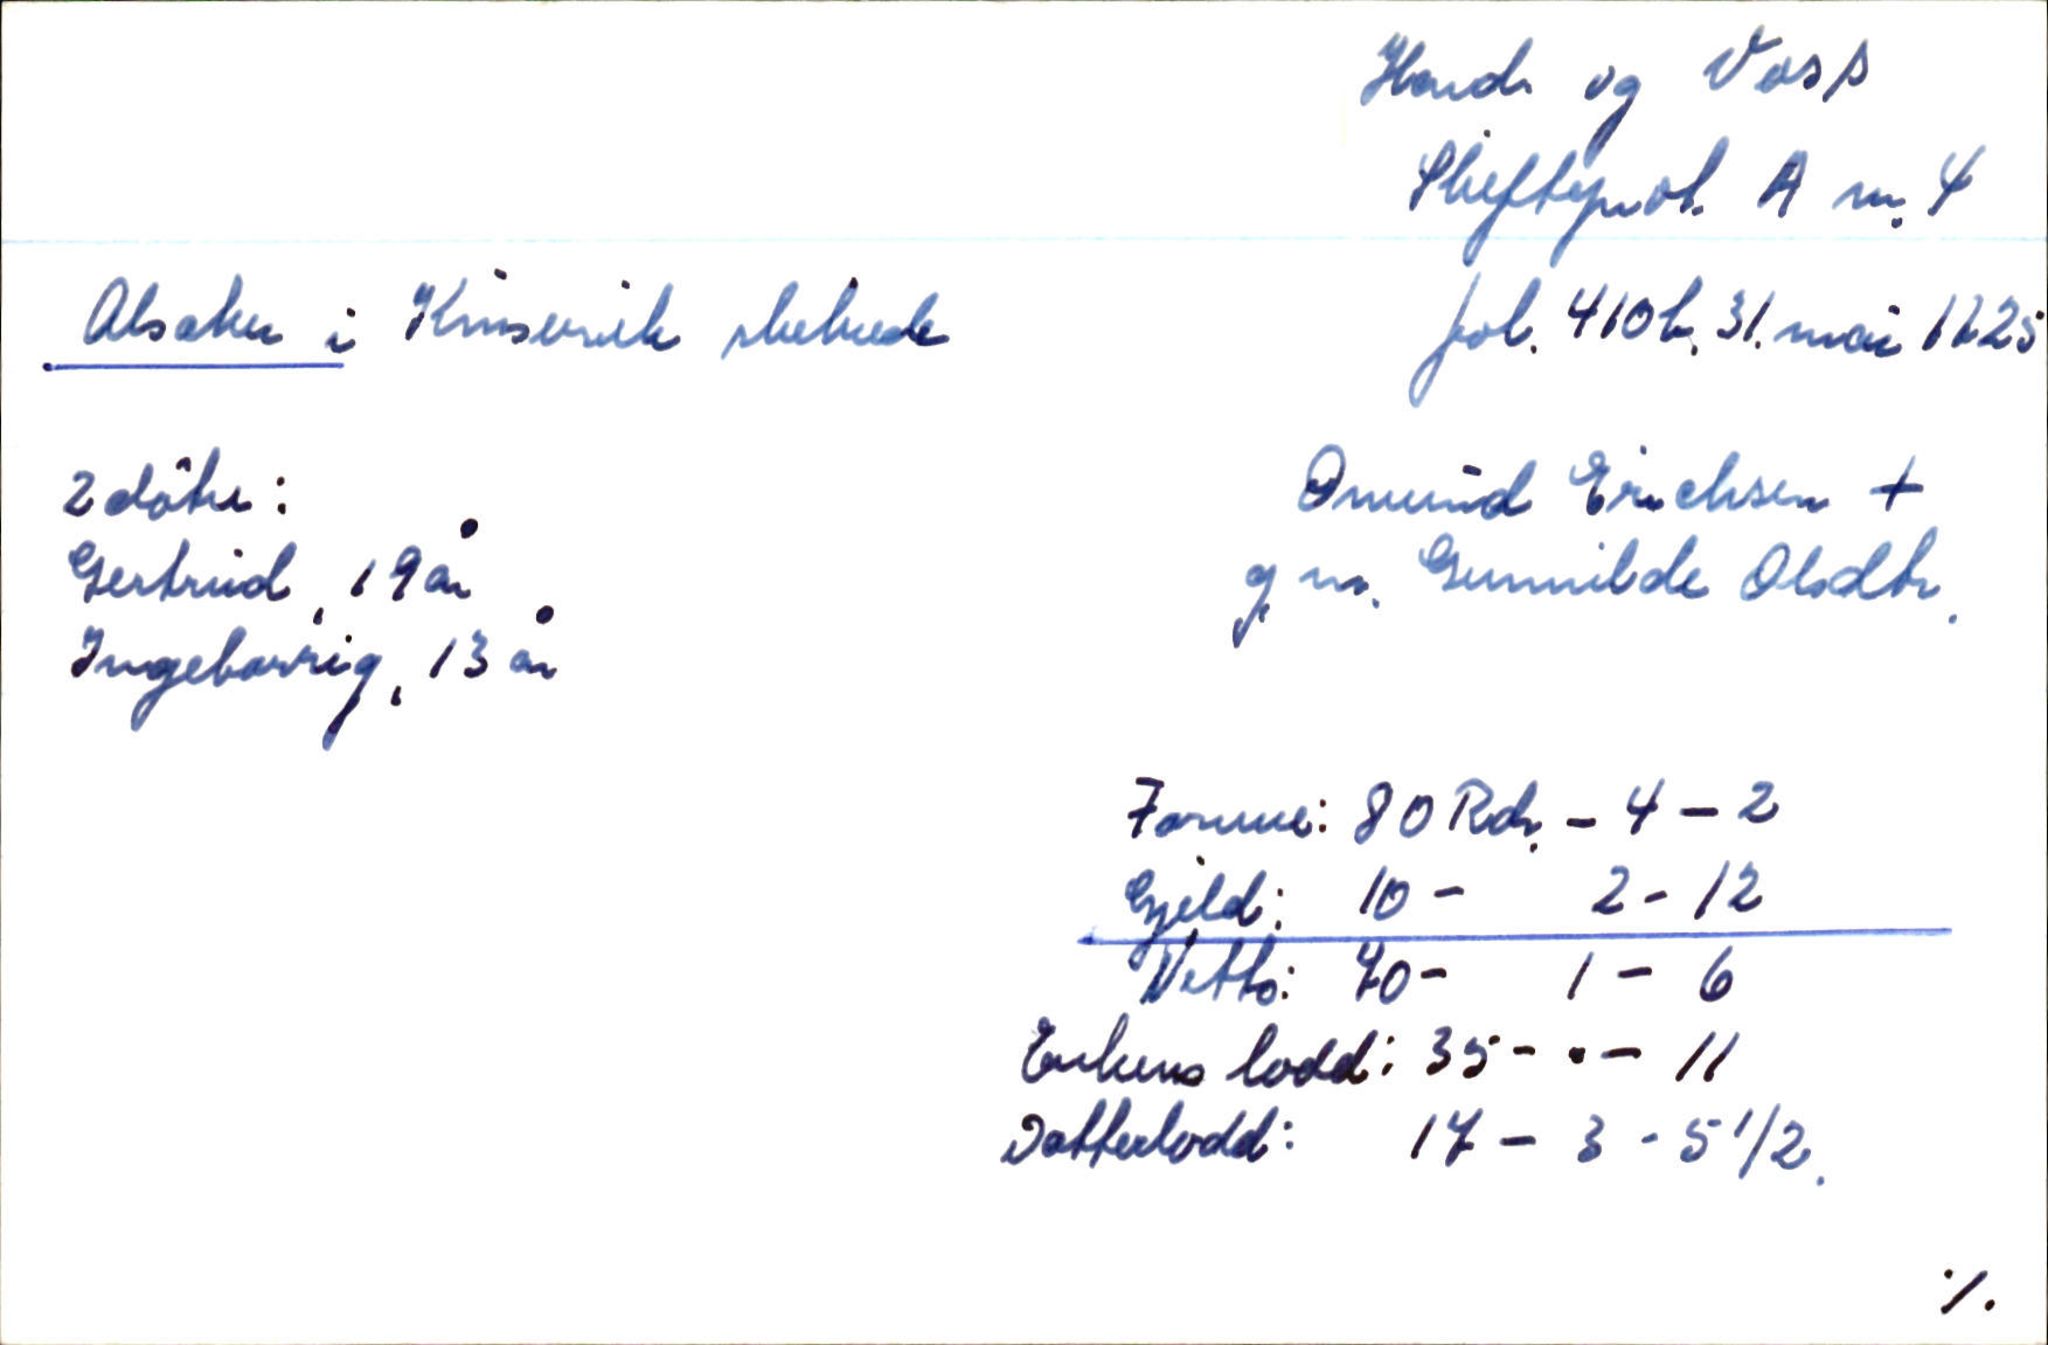 Hard. og Voss
Skifteprot. A nr. 4
Alsaker i Kinservik skibrede
fol. 410b, 31. mai 1725
2 døtre:
Omund Erichsen +
Gertrud, 19 år
g. m. Gunnilde Olsdtr.
Ingebarrig, 13 år
Formue: 80 Rdr. - 4 - 2
Gjeld: 10 - 2 - 12
Netto: 70 - 1 - 6
Enkens lodd: 35 - . - 11
Datterlodd: 17 - 3 - 5 1/2.
./.